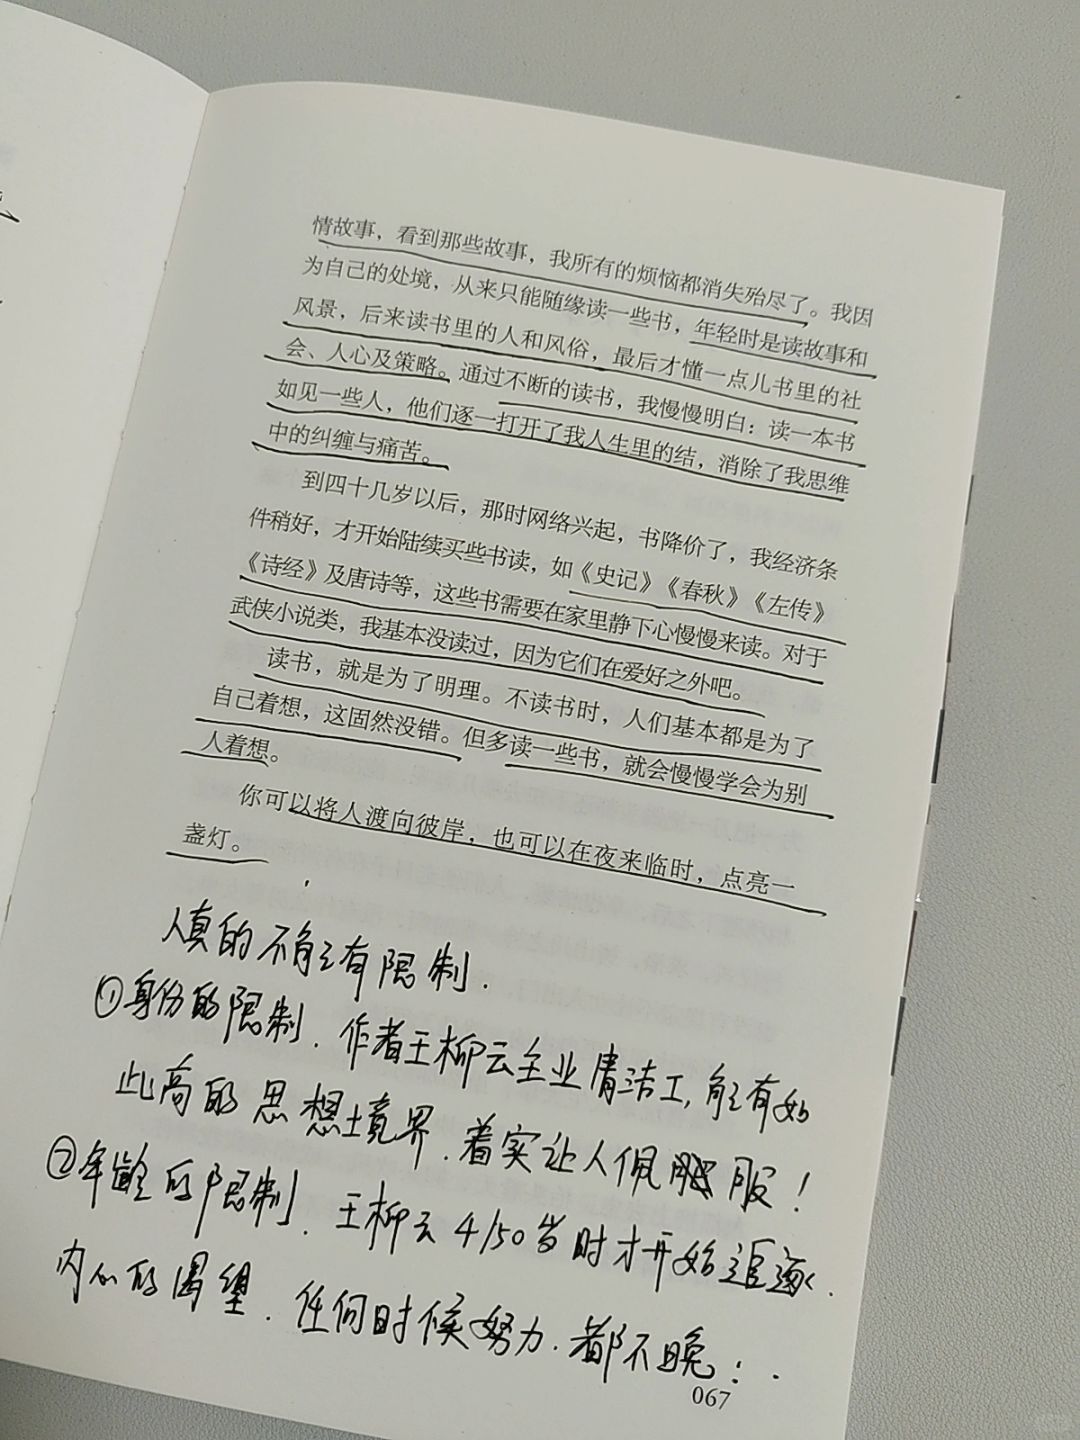 情故事，看到那些故事，我所有的烦恼都消失殆尽了。我因
为自己的处境，从来只能随缘读一些书，年轻时是读故事和
风景，后来读书里的人和风俗，最后才懂一点儿书里的社
会、人心及策略。通过不断的读书，我慢慢明白：读一本书
如见一些人，他们逐一打开了我人生里的结，消除了我思维
中的纠缠与痛苦。
到四十几岁以后，那时网络兴起，书降价了，我经济条
件稍好，才开始陆续买些书读，如《史记》《春秋》《左传》
《诗经》及唐诗等，这些书需要在家里静下心慢慢来读。对于
武侠小说类，我基本没读过，因为它们在爱好之外吧。
读书，就是为了明理。不读书时，人们基本都是为了
自己着想，这固然没错。但多读一些书，就会慢慢学会为别
人着想。
你可以将人渡向彼岸，也可以在夜来临时，点亮一
盏灯。
人真的不能有限制.
①身份的限制. 作者王柳云主业清洁工, 能有如
此高的思想境界. 着实让人佩服!
②年龄的限制. 王柳云4/50岁时才开始追逐
内心的渴望. 任何时候努力. 都不晚!
067